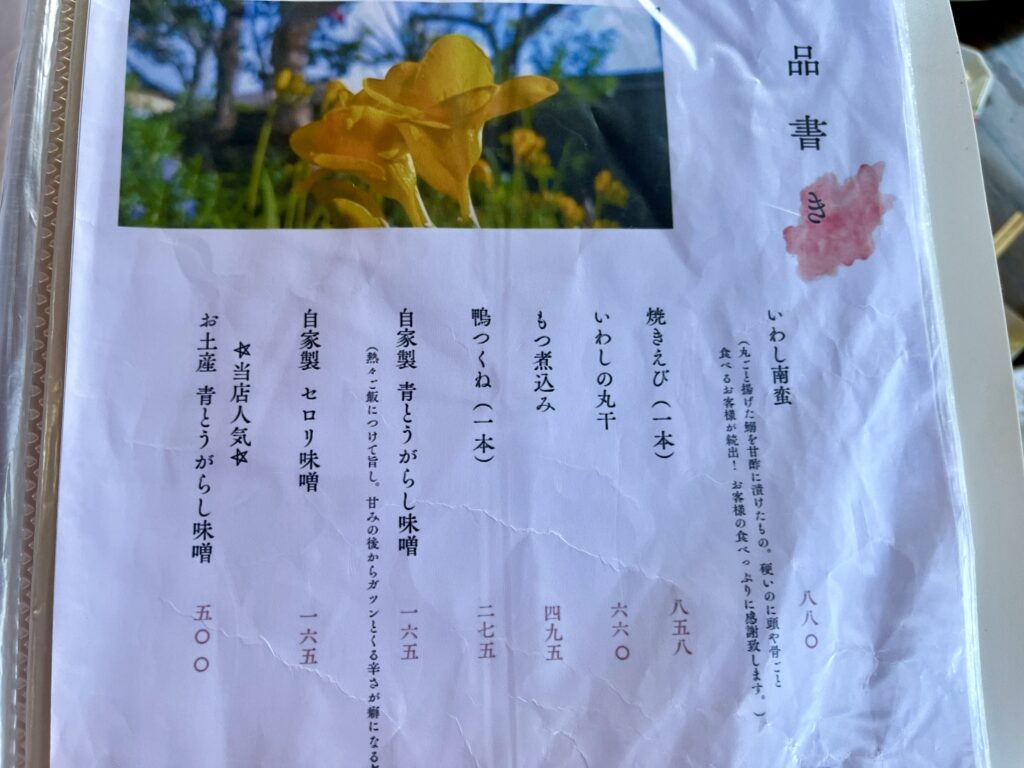 品書き
いわし南蛮 八八〇
(丸ごと揚げた鰯を甘酢に漬けたもの。硬いのに頭や骨ごと
食べるお客様が続出! お客様の食べっぷりに感謝致します。)
焼きえび(一本) 八五八
いわしの丸干 六六〇
もつ煮込み 四九五
鴨つくね(一本) 二七五
自家製 青とうがらし味噌 一六五
(熱々ご飯につけて旨し。甘みの後からガツンとくる辛さが癖になる
自家製 セロリ味噌 一六五
☆当店人気☆
お土産 青とうがらし味噌 五〇〇